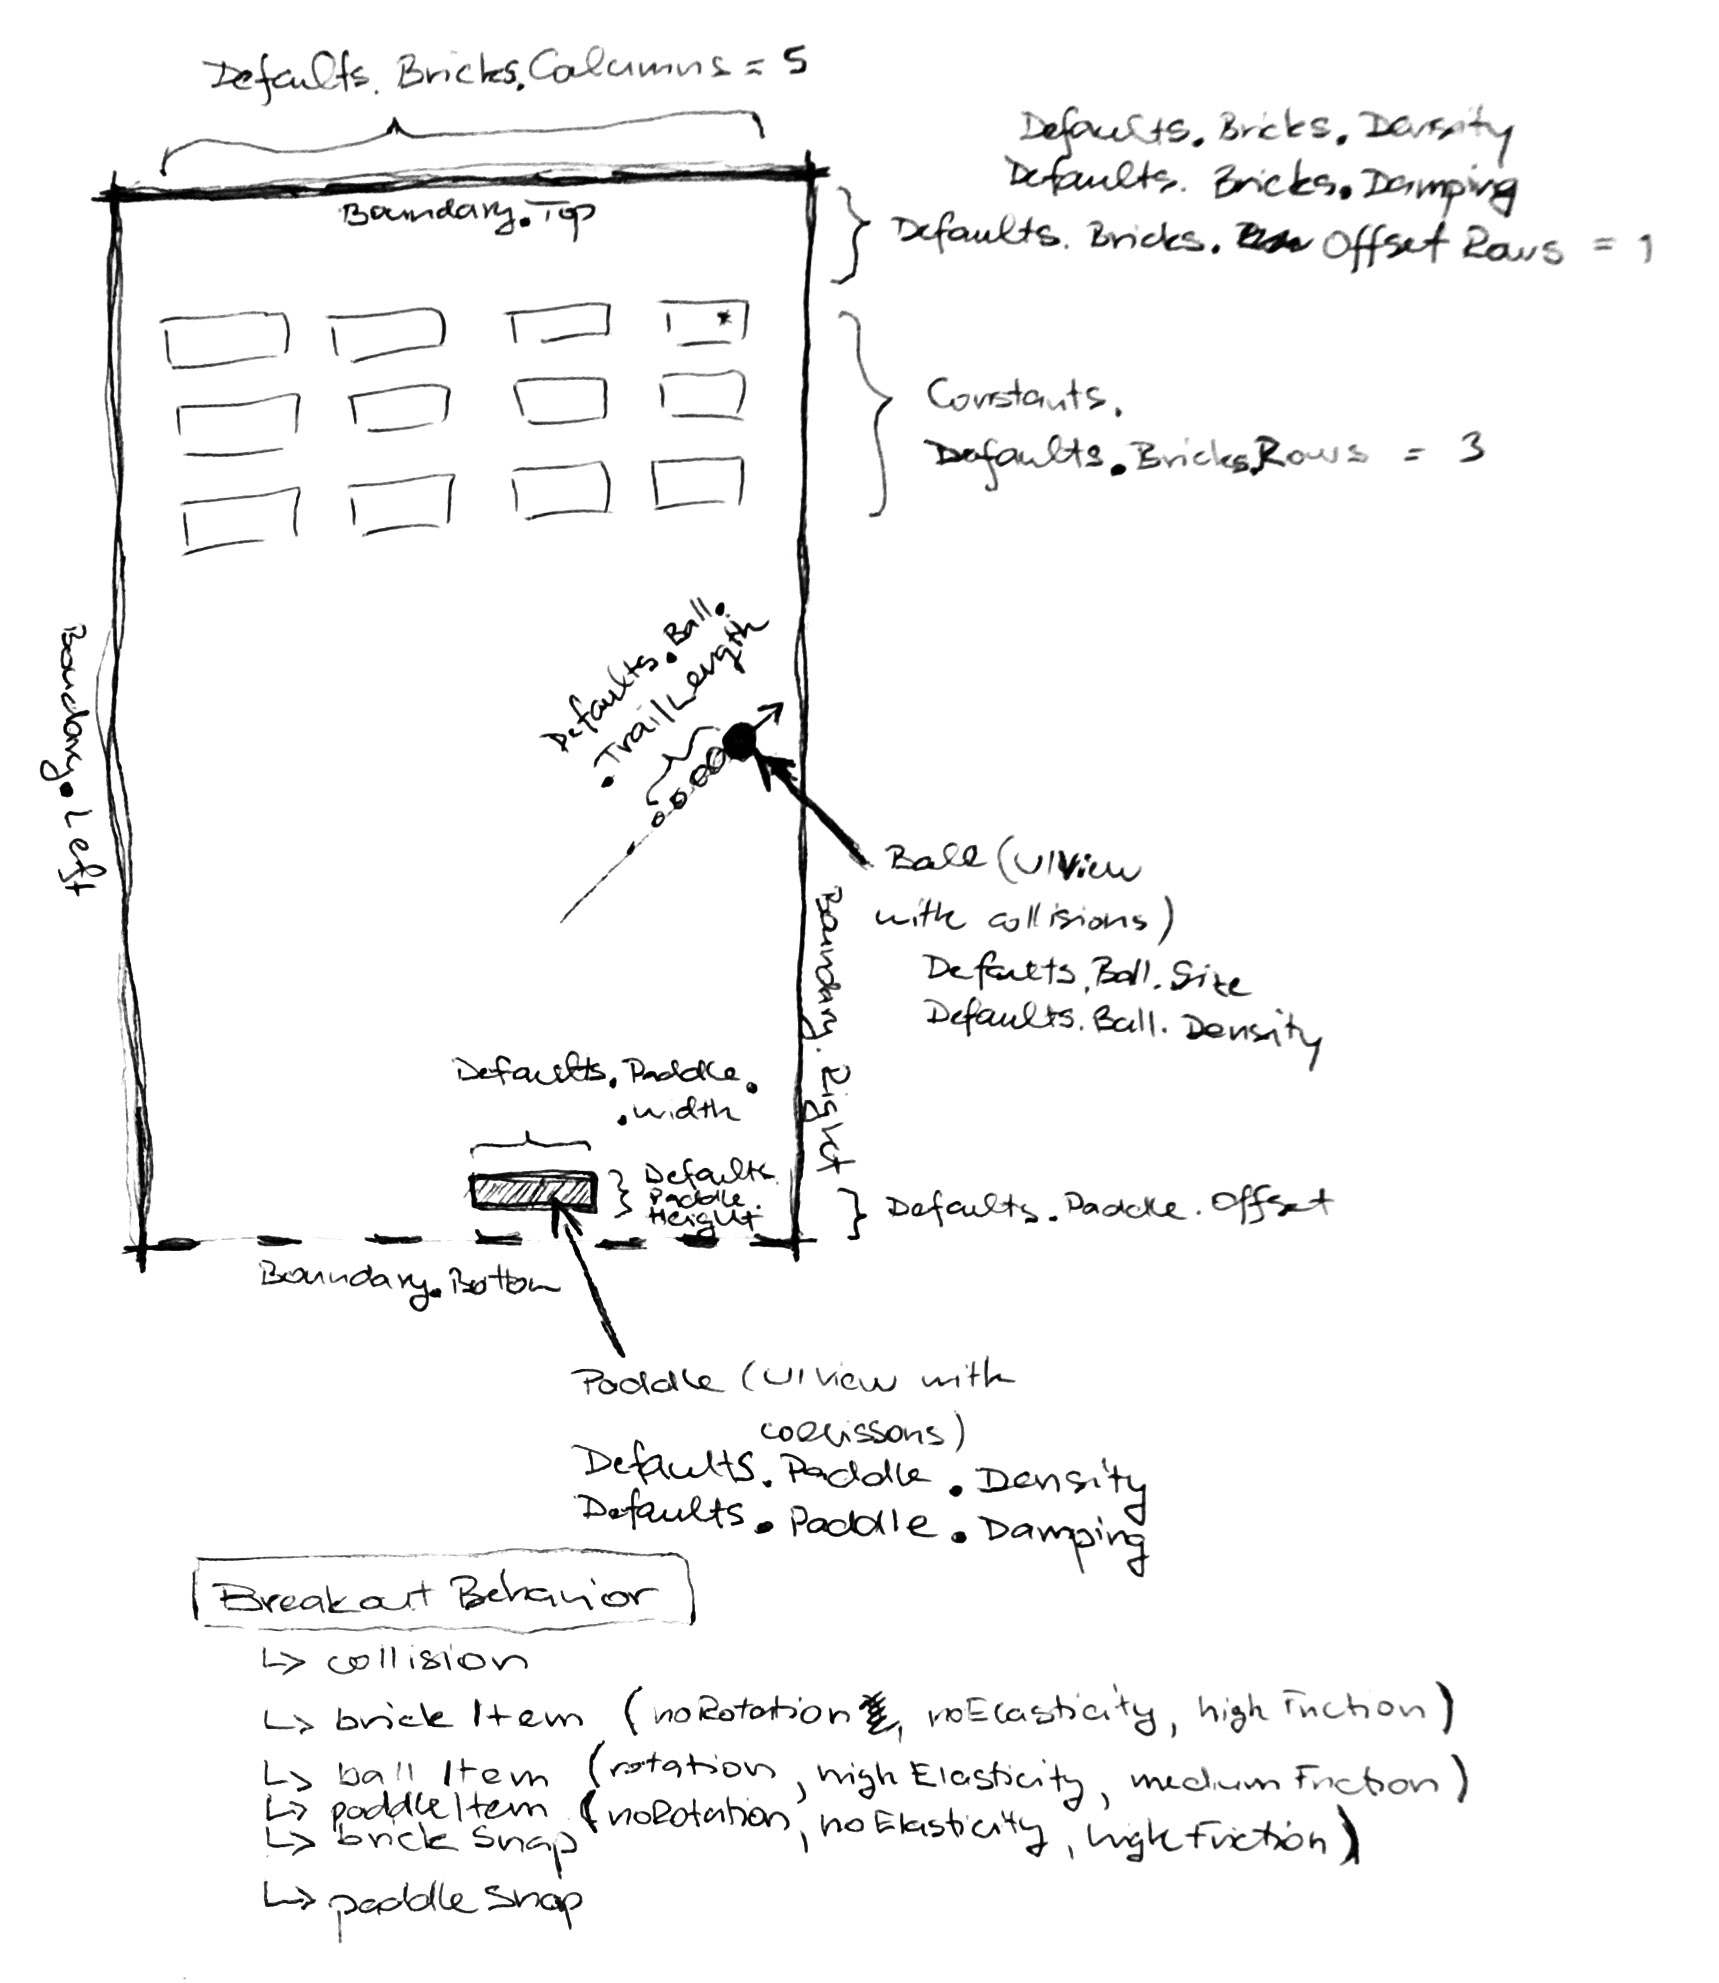 Defaults. Bricks. Columns = 5
Defaults. Bricks. Density
Defaults. Bricks. Damping
Defaults. Bricks. Offset Rows = 1
Boundary. Top
*
Constants.
Defaults. Bricks. Rows = 3
Defaults. Ball.
. TrailLength
Boundary. Left
Ball (UIView
with collisions)
Defaults. Ball. Size
Defaults. Ball. Density
Boundary. Right
Defaults. Paddle.
. width
Defaults.
Paddle.
Height
Defaults. Paddle. Offset
Boundary. Bottom
Paddle (UIView with
collissons)
Defaults. Paddle. Density
Defaults. Paddle. Damping
Breakout Behavior
↳ collision
↳ brick Item (noRotation, noElasticity, high Friction)
↳ ball Item (rotation, highElasticity, medium Friction)
↳ paddleItem (noRotation, noElasticity, highFriction)
↳ brick Snap
↳ paddle Snap